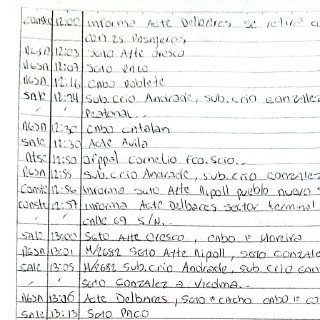 Const 12:00 Informa Agte Delbares se retira co
con 25 Pasajeros
RGSA 12:03 Sgto Agte Orosco
RGSA 12:07 Sgto Paco
RGSA 12:16 Cabo Poblete
Sale 12:24 Sub.Crio Andrade, Sub.Crio Gonzalez
" " Peatonal
RGSA 12:30 Cabo Catalan
Sale 12:30 Agte Avila
12:50 Cornelio Fco.
RGSA 12:55 Sub.Crio Andrade, Sub.Crio Gonzalez
Const 12:56 Informa Sgto Agte Ripoll Pueblo nuevo S
Const 12:57 Informa Agte Delbares Sector Terminal
" " Calle 69 S/N.
Sale 13:00 Sgto Agte Orosco, Cabo 1º Moreira
RGSA 13:01 M/2682 Sgto Agte Ripoll, Sgto Gonzale
Sale 13:05 M/2682 Sub.Crio Andrade, Sub.Crio Gon
Sgto Gonzalez a Viedma.
RGSA 13:06 Agte Delbares, Sgto 1º Cacho Cabo 1º Co
Sale 13:13 Sgto Paco